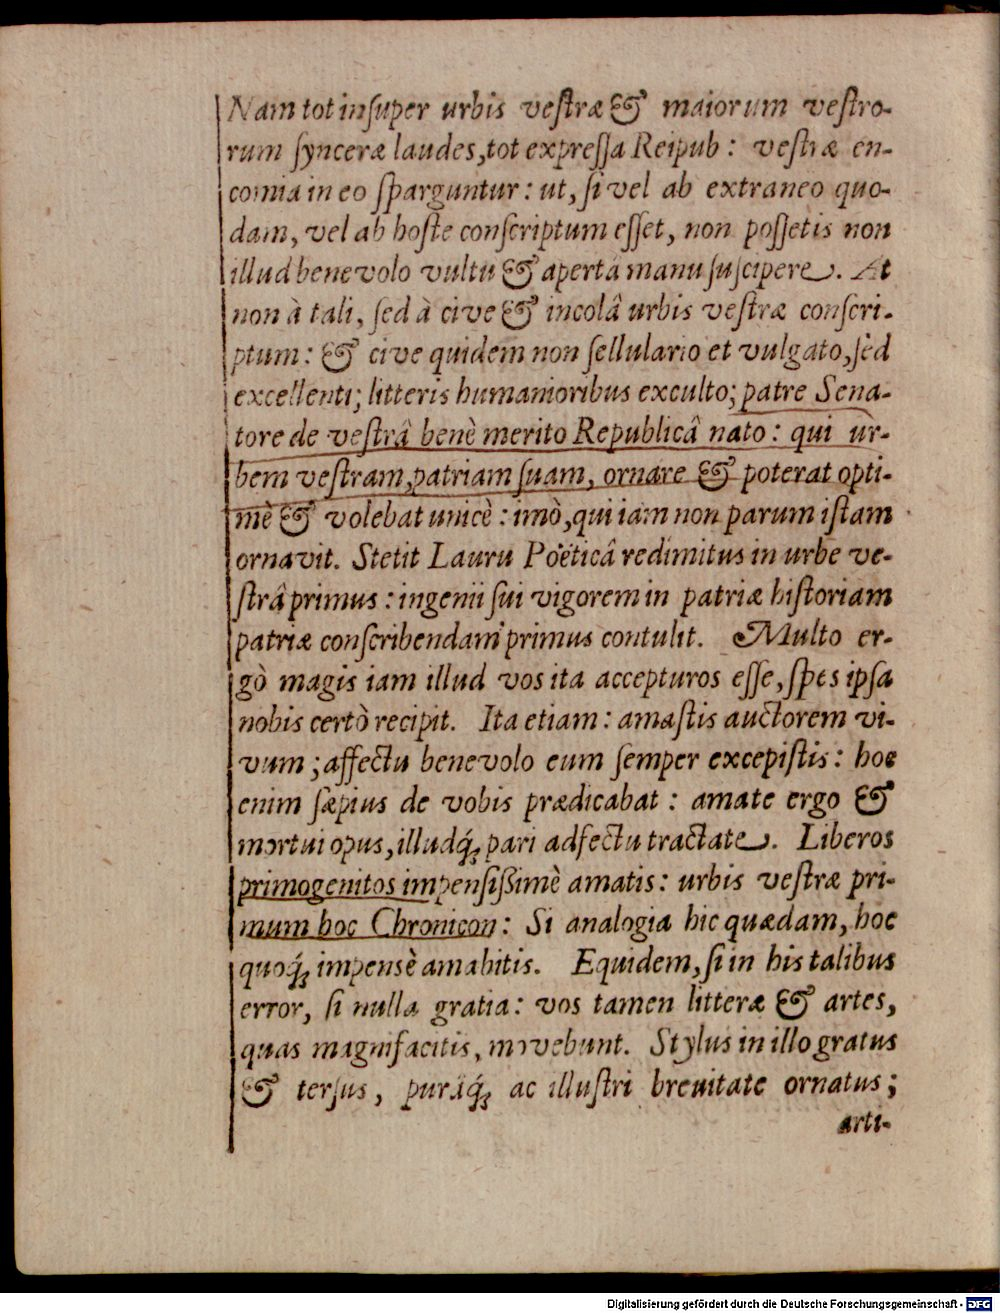 Nam tot inſuper urbis veſtræ & maiorum veſtro-
rum ſynceræ laudes, tot expreſſa Reipub: veſtræ en-
comia in eo ſparguntur: ut, ſi vel ab extraneo quo-
dam, vel ab hoſte conſcriptum eſſet, non poſſetis non
illud benevolo vultu & apertâ manu ſuſcipere. At
non à tali, ſed à cive & incolâ urbis veſtræ conſcri-
ptum: & cive quidem non ſellulario et vulgato, ſed
excellenti; litteris humanioribus exculto; patre Sena-
tore de veſtrâ benè merito Republicâ nato: qui ur-
bem veſtram, patriam ſuam, ornare & poterat opti-
mè & volebat unicè: imò, qui iam non parum iſtam
ornavit. Stetit Lauru Poëticâ redimitus in urbe ve-
ſtrâ primus: ingenii ſui vigorem in patriæ hiſtoriam
patriæ conſcribendam primus contulit. Multo er-
gò magis iam illud vos ita accepturos eſſe, ſpes ipſa
nobis certò recipit. Ita etiam: amaſtis auctorem vi-
vum; affectu benevolo eum ſemper excepiſtis: hoc
enim ſæpius de vobis prædicabat: amate ergo &
mortui opus, illudq́; pari adfectu tractate. Liberos
primogenitos impenſiſſimè amatis: urbis veſtræ pri-
mum hoc Chronicon: Si analogia hic quædam, hoc
quoq́; impensè amabitis. Equidem, ſi in his talibus
error, ſi nulla gratia: vos tamen litteræ & artes,
quas magnifacitis, movebunt. Stylus in illo gratus
& terſus, purâq́; ac illuſtri brevitate ornatus;
arti-
Digitalisierung gefördert durch die Deutsche Forschungsgemeinschaft - DFG